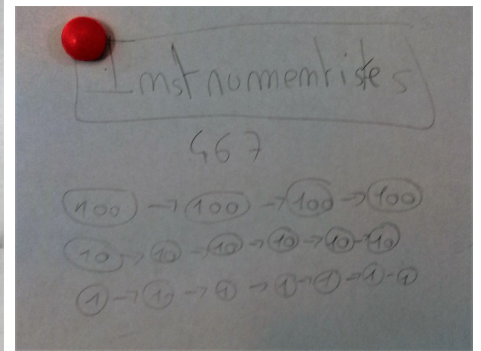 Instrumentistes
467
100 → 100 → 100 → 100
10 → 10 → 10 → 10 → 10 → 10
1 → 1 → 1 → 1 → 1 → 1 → 1